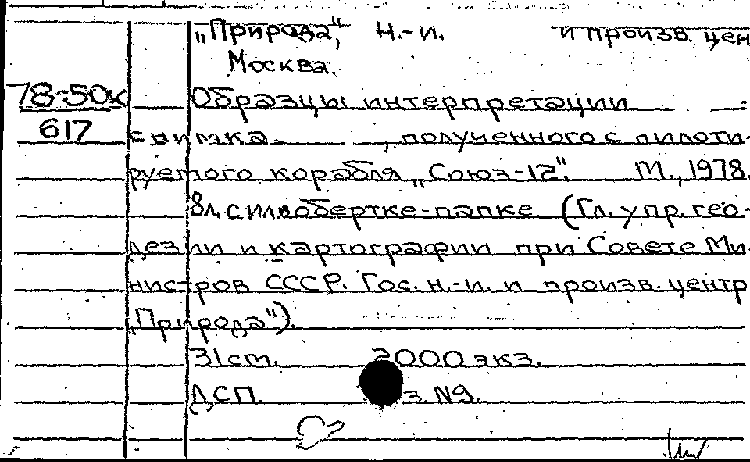 „Природа", Н.-и. и произв. цен
Москва.
78-50к Образцы интерпретации :
617 снимка , полученного с пилоти-
руемого корабля „Союз-12". М., 1978.
8л. с илл. обертке-папке (Гл. упр. гео-
дезии и картографии при Совете Ми-
нистров СССР. Гос. н.-и. и произв. центр
„Природа").
31 ст. 2000 экз.
ДСП. з. №9.